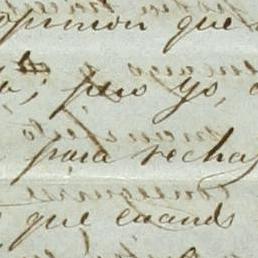 opinion que
; pero yo,
para rechaz
que cuando